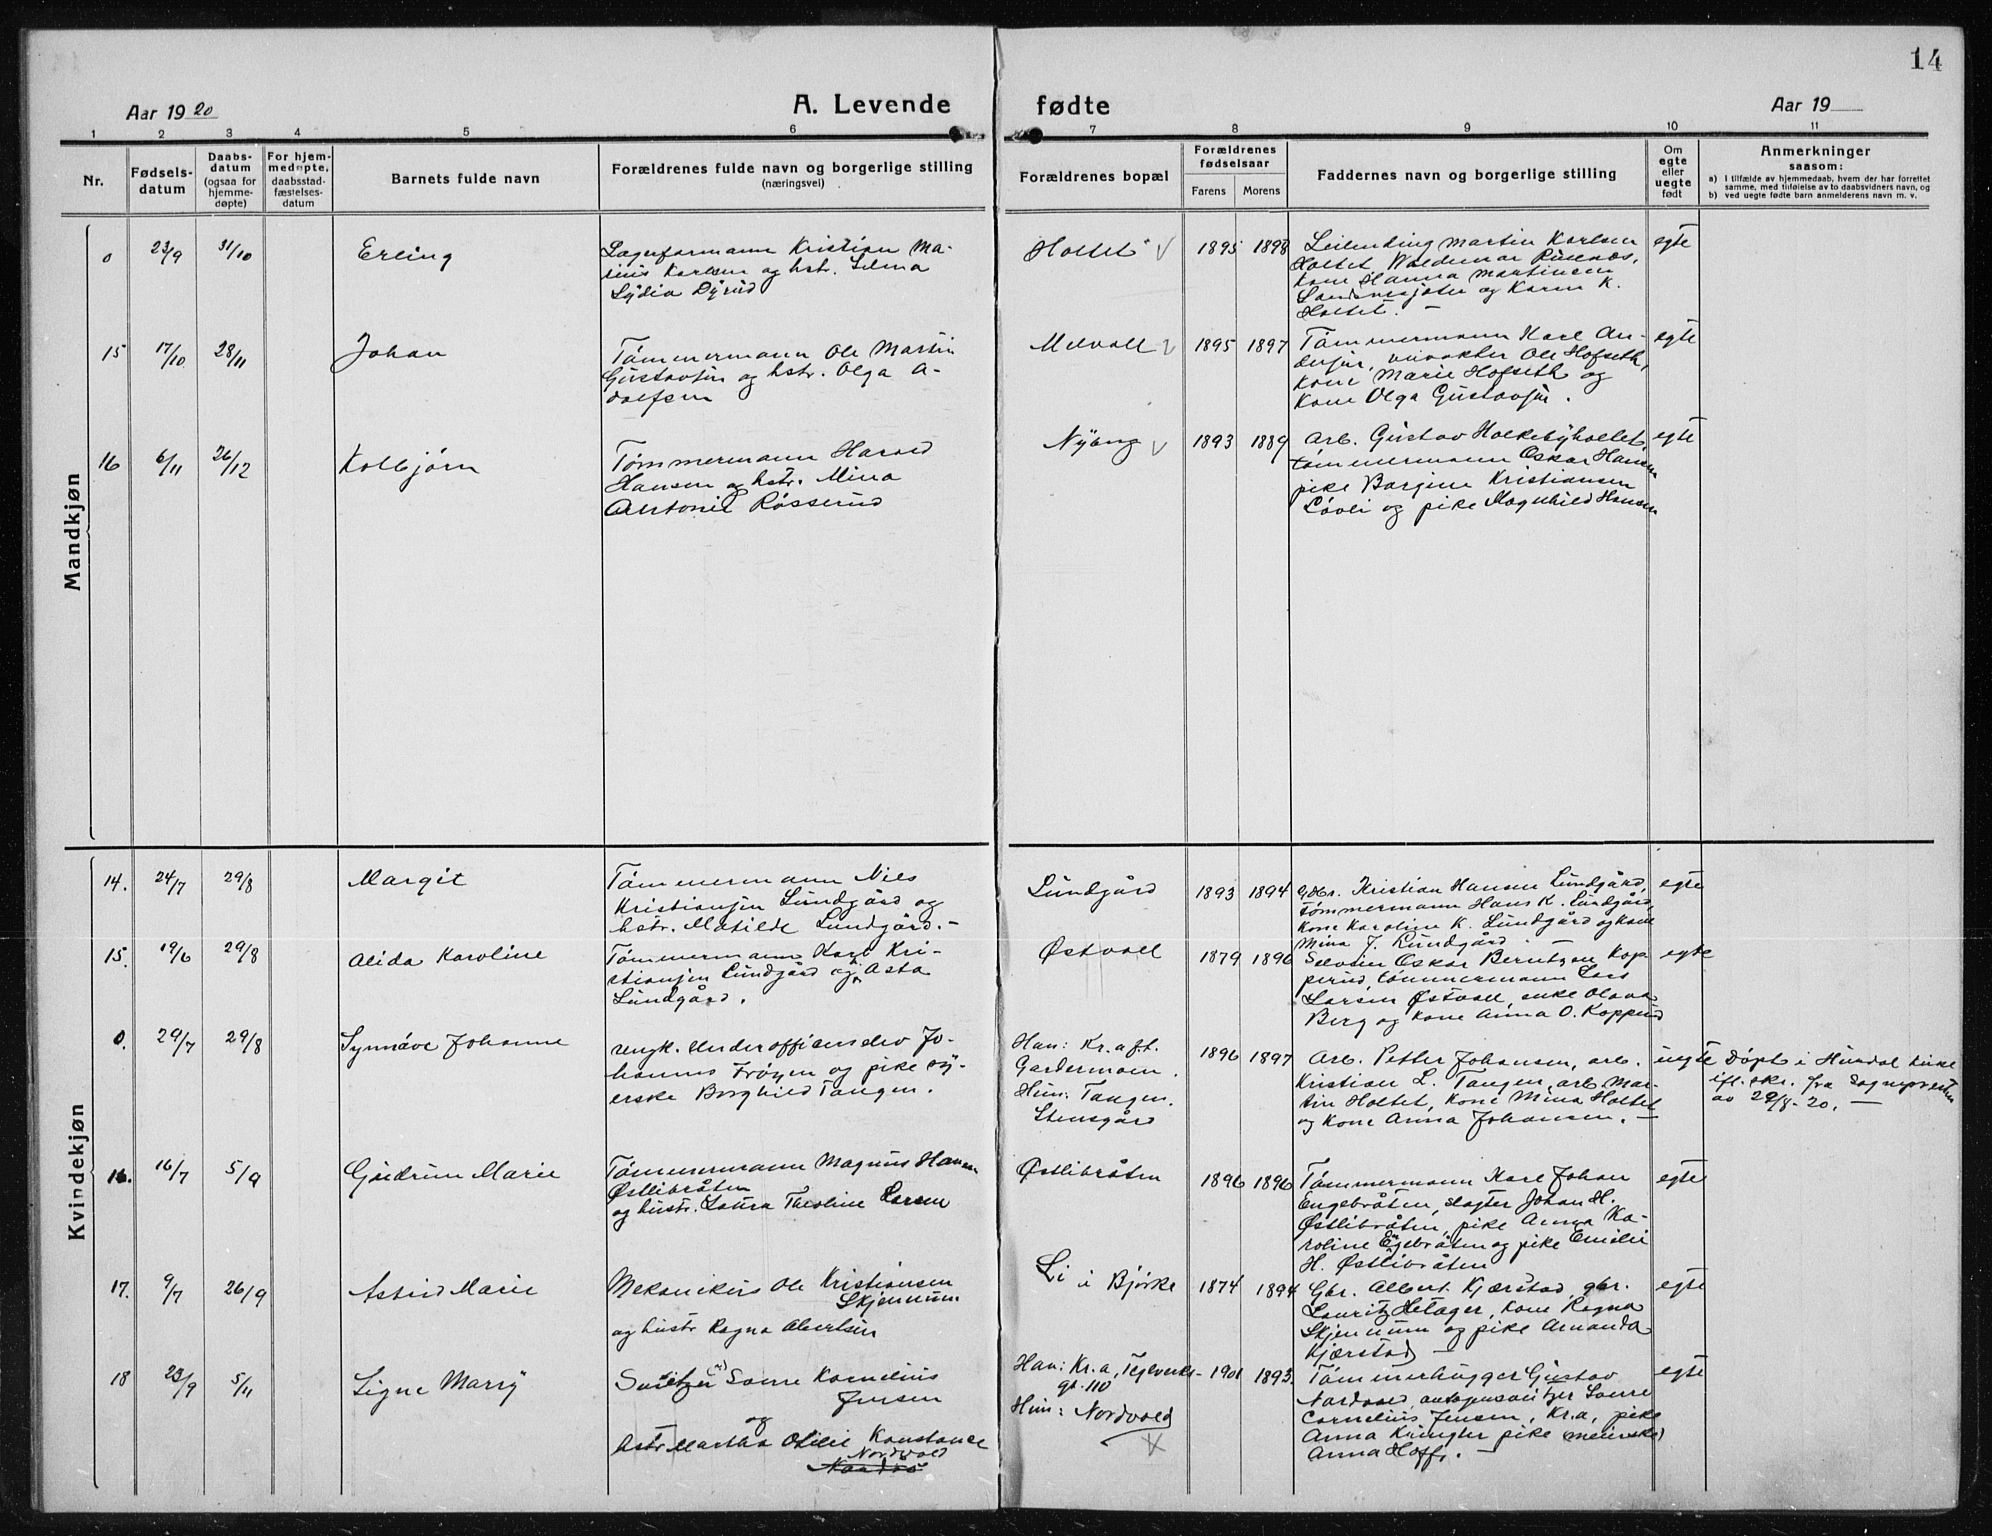 14
Aar 1920
A. Levende fødte
Aar 19
1 2 3 4 5 6 7 8 9 10 11
Nr.
Fødsels-
datum
Daabs-
datum
(ogsaa for
hjemme-
døpte)
For hjem-
medøpte,
daabsstad-
fæstelses-
datum
Barnets fulde navn
Forældrenes fulde navn og borgerlige stilling
(næringsvei)
Forældrenes bopæl
Forældrenes
fødselsaar
Farens Morens
Faddernes navn og borgerlige stilling
Om
egte
eller
uegte
født
Anmerkninger
saasom:
a) I tilfælde av hjemmedaab, hvem der har forrettet
samme, med tilføielse av to daabsvidners navn, og
b) ved uegte fødte barn anmelderens navn m. v.
Mandkjøn
0 23/9 31/10 Erling
Lagerformann Kristian Ma-
rius Karlsen og hstr.
Lydia Dyrud
Holtet 1895 1898
Leilending Martin Karlsen
Holtet, Waldemar
Kone Hanna Martinsen
og Karen K.
Holtet. —
egte
15 17/10 28/11 Johan
Tømmermann Ole Martin
Gustavsen og hstr. Olga A-
dolfsen
Melvoll 1895 1897
Tømmermann Karl An-
dersen, Ole Hofseth,
Kone Marie Hofseth og
Kone Olga Gustavsen.
egte
16 6/11 26/12 Kolbjørn
Tømmermann Harald
Hansen og hstr. Mina
Antonie Røsserud
Nyeng 1893 1889
Arb. Gustav Holkebyhollet,
tømmermann Oskar Hansen
pike Borgine Kristiansen
Løvli og pike Magnhild Hansen
egte
Kvindekjøn
14. 24/7 29/8 Margit
Tømmermann Nils
Kristiansen Lundgård og
hstr. Matilde Lundgård. —
Lundgård 1893 1894
Gbr. Kristian Hansen Lundgård,
Tømmermann Hans K. Lundgård,
Kone Karoline K. Lundgård og Kone
Mina J. Lundgård
egte
15. 19/6 29/8 Alida Karoline
Tømmermann Karl Kri-
stiansen Lundgård og Asta
Lundgård.
Østvoll 1879 1896
Oskar Berntzen Kop-
perud, tømmermann Lars
Larsen Østvoll, enke Olava
Berg og Kone Anna O. Kopperud
egte
0. 29/7 29/8 Synnøve Johanne
vengk. Underofficerselev Jo-
hannes Frøyen og pike sy-
erske Borghild Tangen.
Han: Kr.a fl.
Gardermoen.
Hun: Tangen.
Stensgård
1896 1897
Arb. Petter Johansen, arb.
Kristian L. Tangen, arb. Mar-
tin Holtet, Kone Mina Holtet
og Kone Anna Johansen. —
uegte
Døpt i Kirke
ifl. skr. fra Sognepresten
av 29/8-20. —
16. 16/7 5/9 Gudrun Marie
Tømmermann Magnus Hansen
Østlibråten
og hustr. Laura Theoline Larsen
Østlibråten 1896 1896
Tømmermann Karl Johan
Engebråten, slagter Johan H.
Østlibråten, pike Anna Ka-
roline Engebråten og pike Emilie
H. Østlibråten
egte
17. 9/7 26/9 Astrid Marie
Mekanikus Ole Kristiansen
Skjennum
og hustr Ragna Albertsen
Li i Bjørke 1874 1894
Gbr. Albert Kjærstad, gbr.
Lauritz Hetager, Kone Ragna
Skjennum og pike Amanda
Kjærstad —
egte
18 23/9 5/11 Signe Marry
Kornelius
Jensen
og
hstr Martha Otilie Konstanse
Nordvold
Han: Kr.a, Teglverks-
gt. 110
Hun: Nordvold
1901 1893.
Tømmerhugger Gustav
Nordvold,
Cornelius Jensen, Kr.a, pike
Anna pike (meierske)
Anna Hoff. —
egte